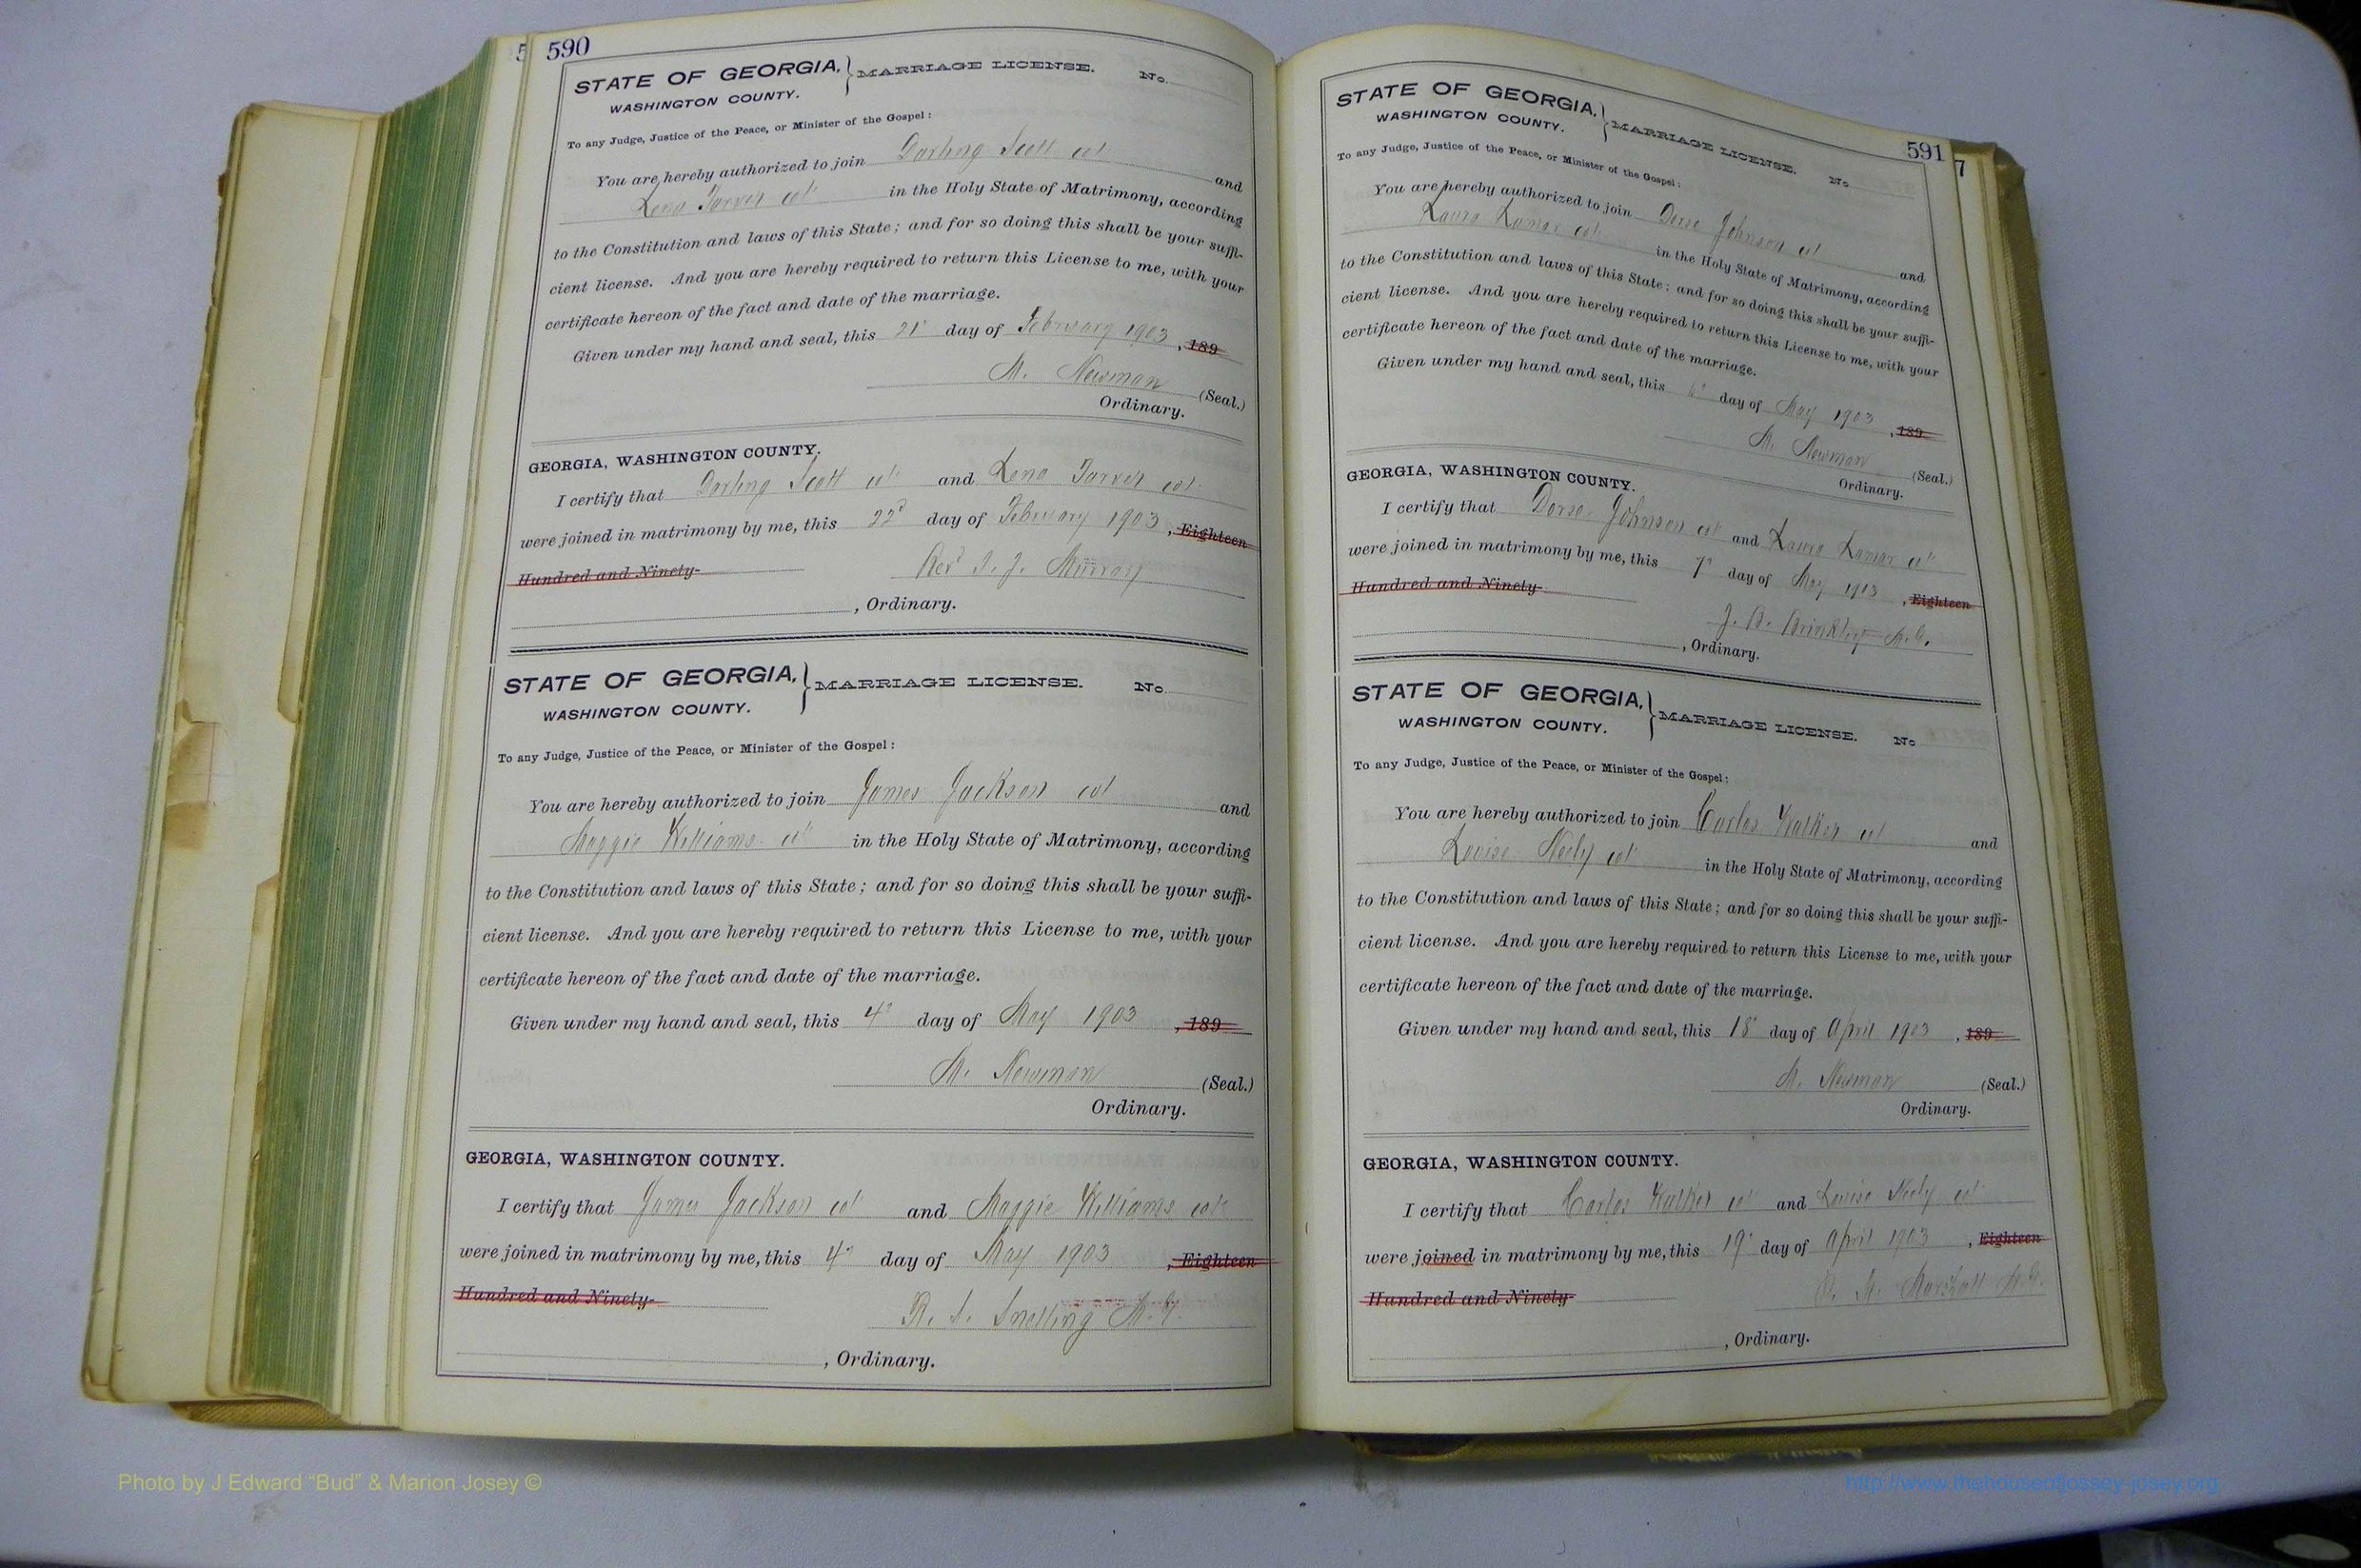 5 590
STATE OF GEORGIA, } MARRIAGE LICENSE. No.
WASHINGTON COUNTY.
To any Judge, Justice of the Peace, or Minister of the Gospel:
You are hereby authorized to join Darling Scott col and
Lena Tarver col in the Holy State of Matrimony, according
to the Constitution and laws of this State; and for so doing this shall be your suffi-
cient license. And you are hereby required to return this License to me, with your
certificate hereon of the fact and date of the marriage.
Given under my hand and seal, this 21 day of February 1903, 189
M. Newman (Seal.)
Ordinary.
GEORGIA, WASHINGTON COUNTY.
I certify that Darling Scott col and Lena Tarver col
were joined in matrimony by me, this 22d day of February 1903, Eighteen
Hundred and Ninety- Rev Murray
, Ordinary.
STATE OF GEORGIA, } MARRIAGE LICENSE. No.
WASHINGTON COUNTY.
To any Judge, Justice of the Peace, or Minister of the Gospel:
You are hereby authorized to join James Jackson col and
Maggie Williams col in the Holy State of Matrimony, according
to the Constitution and laws of this State; and for so doing this shall be your suffi-
cient license. And you are hereby required to return this License to me, with your
certificate hereon of the fact and date of the marriage.
Given under my hand and seal, this 4 day of May 1903, 189
M. Newman (Seal.)
Ordinary.
GEORGIA, WASHINGTON COUNTY.
I certify that James Jackson col and Maggie Williams col
were joined in matrimony by me, this 4 day of May 1903, Eighteen
Hundred and Ninety- R. S. Snelling M.G.
, Ordinary.
591 7
STATE OF GEORGIA, } MARRIAGE LICENSE. No
WASHINGTON COUNTY.
To any Judge, Justice of the Peace, or Minister of the Gospel:
You are hereby authorized to join Dorse Johnson col and
Laura Lamar col in the Holy State of Matrimony, according
to the Constitution and laws of this State; and for so doing this shall be your suffi-
cient license. And you are hereby required to return this License to me, with your
certificate hereon of the fact and date of the marriage.
Given under my hand and seal, this 6 day of May 1903, 189
M. Newman (Seal.)
Ordinary.
GEORGIA, WASHINGTON COUNTY.
I certify that Dorse Johnson col and Laura Lamar col
were joined in matrimony by me, this 7 day of May 1903, Eighteen
Hundred and Ninety-
J. B. Brinkley M.G.
, Ordinary.
STATE OF GEORGIA, } MARRIAGE LICENSE. No
WASHINGTON COUNTY.
To any Judge, Justice of the Peace, or Minister of the Gospel:
You are hereby authorized to join Carlos Walker col and
Louise Neely col in the Holy State of Matrimony, according
to the Constitution and laws of this State; and for so doing this shall be your suffi-
cient license. And you are hereby required to return this License to me, with your
certificate hereon of the fact and date of the marriage.
Given under my hand and seal, this 18 day of April 1903, 189
M. Newman (Seal.)
Ordinary.
GEORGIA, WASHINGTON COUNTY.
I certify that Carlos Walker col and Louise Neely col
were joined in matrimony by me, this 19 day of April 1903, Eighteen
Hundred and Ninety- Marshall M.G.
, Ordinary.
Photo by J Edward “Bud” & Marion Josey © http://www.thehouseofjossey-josey.org